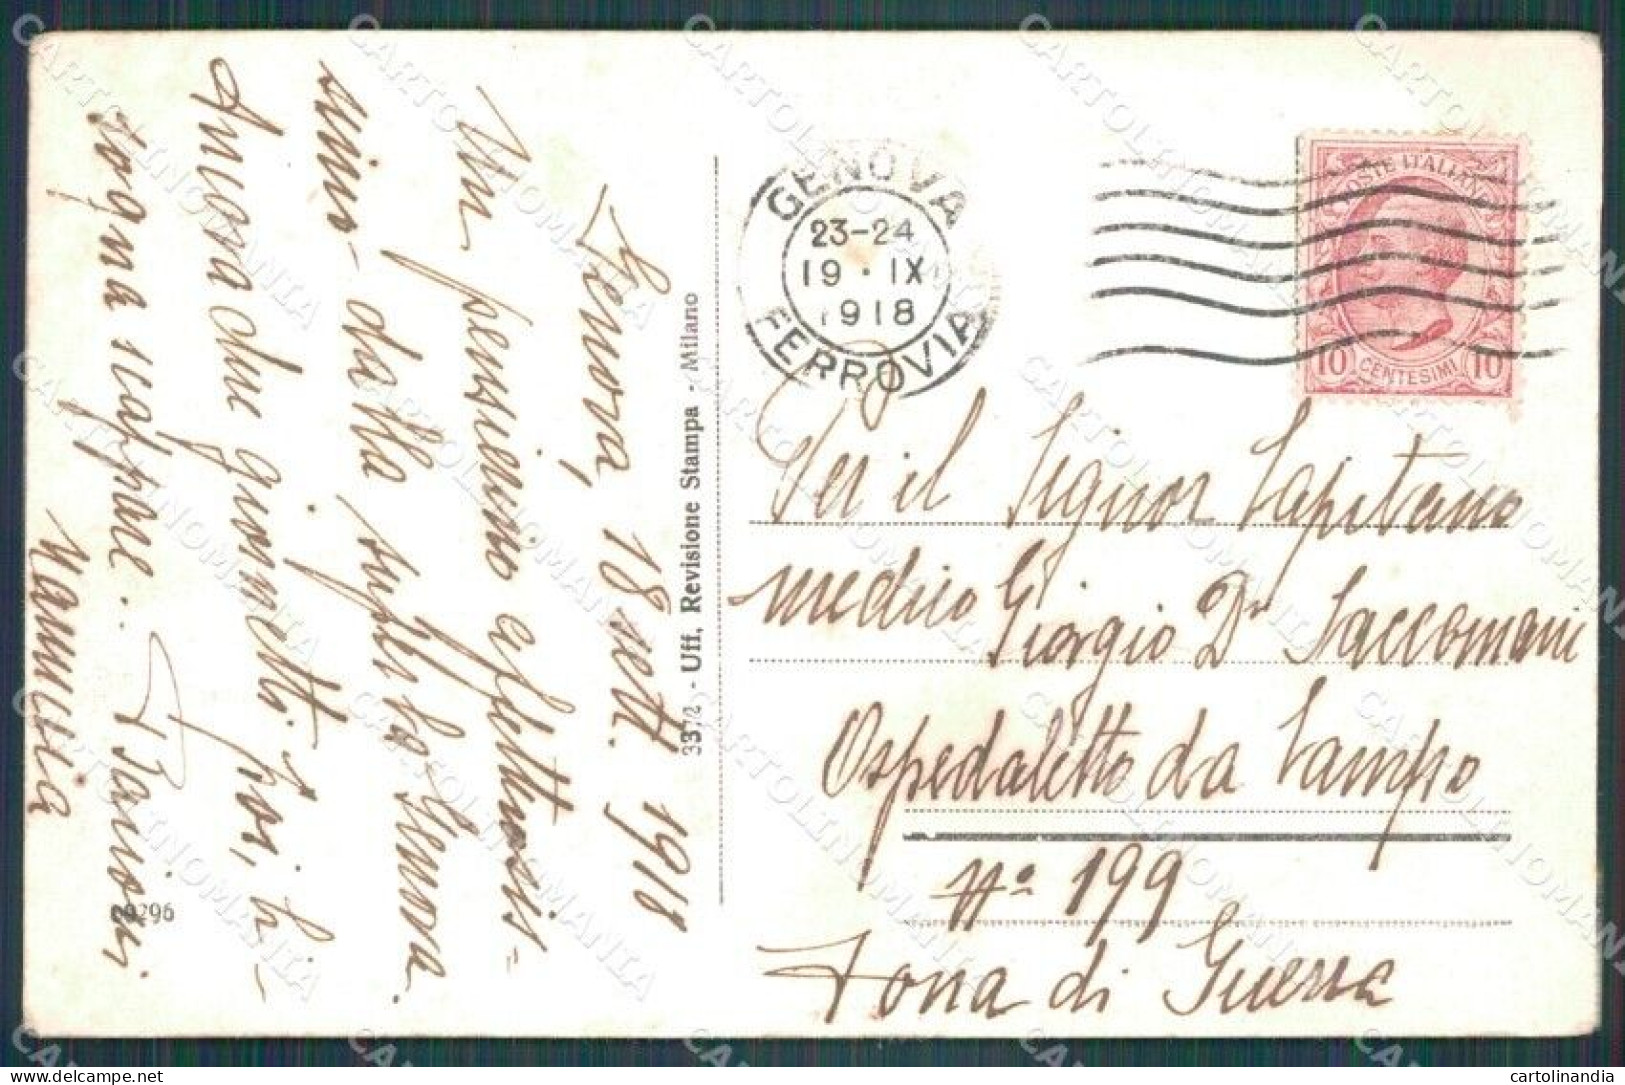 Genova, 18 sett. 1918
Un pensiero affettuosis-
simo dalla superba Genova.
Ancora due giornetti e poi, bi-
sogna scappare. Bacioni
Mammia
3372 - Uff. Revisione Stampa - Milano
69296
GENOVA
23-24
19 · IX
1918
FERROVIA
POSTE ITALIANE
10 CENTESIMI 10
Per il Signor Capitano
medico Giorgio Dr Saccomani
Ospedaletto da Campo
No 199
Zona di Guerra
CARTOLINOMANIA
cartolinandia